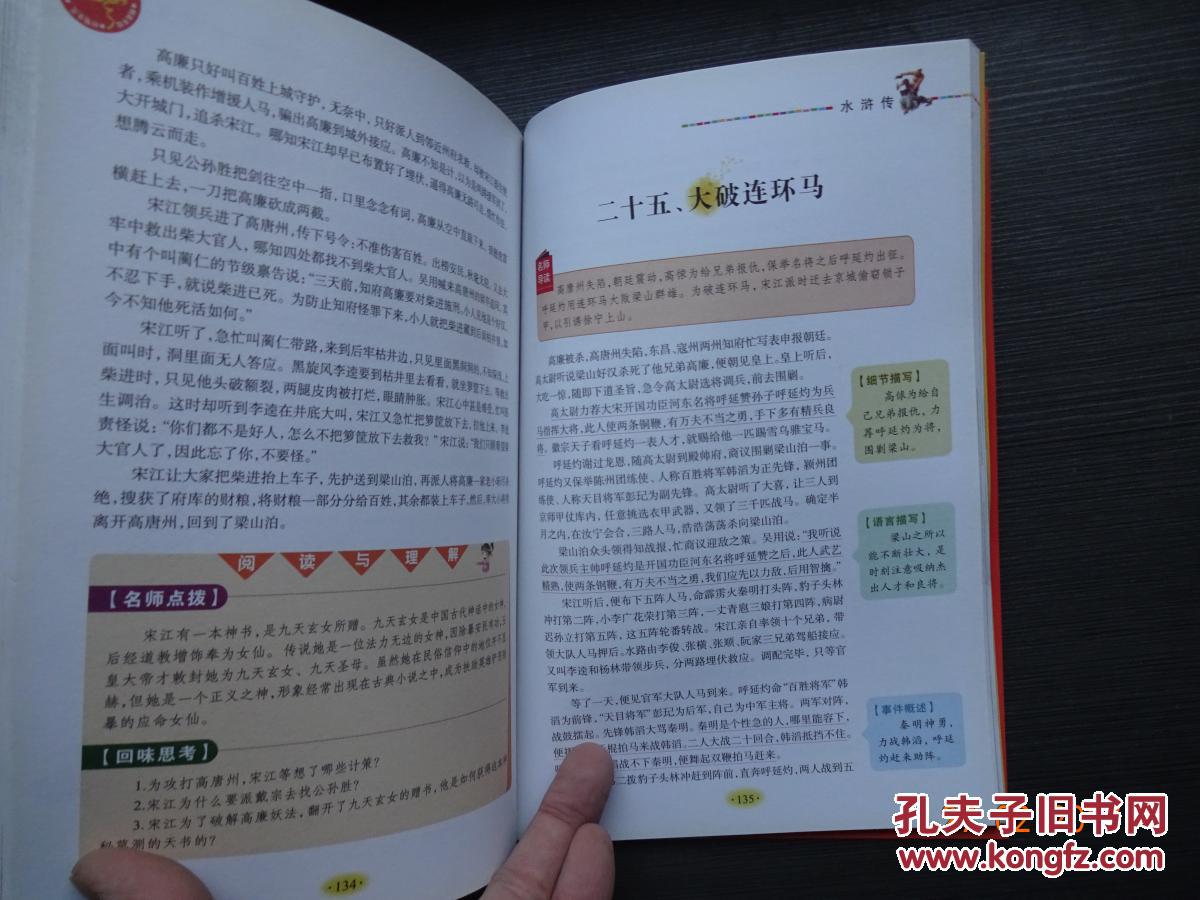 高廉只好叫百姓上城守护，无奈中，只好派人到等近州府求救
者，乘机装作增援人马，骗出高廉到城外接应。高廉不知是计，以为
大开城门，追杀宋江。哪知宋江却早已布置好了埋伏，逼得高廉无路可走
想腾云而走。
只见公孙胜把剑往空中一指，口里念念有词，高廉从空中直跌下来
横赶上去，一刀把高廉砍成两截。
宋江领兵进了高唐州，传下号令：不准伤害百姓。出榜安民，秋毫无犯。又去大
牢中救出柴大官人，哪知四处都找不到柴大官人。吴用喊来高唐州的狱卒追问，其
中有个叫蔺仁的节级禀告说：“三天前，知府高廉要对柴进施刑，小人见他是个好汉，
不忍下手，就说柴进已死。为防止知府怪罪下来，小人就把柴进藏到后面枯井里，如
今不知他死活如何。”
宋江听了，急忙叫蔺仁带路，来到后牢枯井边，只见里面黑洞洞的，不知深浅。上
面叫时，洞里面无人答应。黑旋风李逵要到枯井里去看看，就坐箩筐下去。等他找
柴进时，只见他头破额裂，两腿皮肉被打烂，眼睛肿胀。宋江心中甚是难受，忙叫医
生调治。这时却听到李逵在井底大叫，宋江又急忙把箩筐放下去，拉他上来，李逵
责怪说：“你们都不是好人，怎么不把箩筐放下去救我？”宋江说：“我们只顾着看柴
大官人了，因此忘了你，不要怪。”
宋江让大家把柴进抬上车子，先护送到梁山泊，再派人将高廉一家老小斩尽杀
绝，搜获了府库的财粮，将财粮一部分分给百姓，其余都装上车子，然后，率大小将领
离开高唐州，回到了梁山泊。
阅读与理解
【名师点拨】
宋江有一本神书，是九天玄女所赠。九天玄女是中国古代神话中的女神，
后经道教增饰奉为女仙。传说她是一位法力无边的女神，因除暴安民有功，玉
皇大帝才敕封她为九天玄女、九天圣母。虽然她在民俗信仰中的地位并不显
赫，但她是一个正义之神，形象经常出现在古典小说之中，成为扶助英雄铲恶除
暴的应命女仙。
【回味思考】
1.为攻打高唐州，宋江等想了哪些计策？
2.宋江为什么要派戴宗去找公孙胜？
3.宋江为了破解高廉妖法，翻开了九天玄女的赠书，他是如何获得这本神
秘莫测的天书的？
·134·
水浒传
二十五、大破连环马
名师
导读
高唐州失陷，朝廷震动，高俅为给兄弟报仇，保举名将之后呼延灼出征。
呼延灼用连环马大败梁山群雄。为破连环马，宋江派时迁去京城偷窃锁子
甲，以引诱徐宁上山。
高廉被杀，高唐州失陷，东昌、寇州两州知府忙写表申报朝廷。
高太尉听说梁山好汉杀死了他兄弟高廉，便朝见皇上。皇上听后，
大吃一惊，随即下道圣旨，急令高太尉选将调兵，前去围剿。
高太尉力荐大宋开国功臣河东名将呼延赞孙子呼延灼为兵
马指挥大将，此人使两条铜鞭，有万夫不当之勇，手下多有精兵良
将。徽宗天子看呼延灼一表人才，就赐给他一匹踢雪乌骓宝马。
呼延灼谢过龙恩，随高太尉到殿帅府，商议围剿梁山泊一事。
呼延灼又保举陈州团练使、人称百胜将军韩滔为正先锋，颍州团
练使、人称天目将军彭玘为副先锋。高太尉听了大喜，让三人到
京师甲仗库内，任意挑选衣甲武器，又领了三千匹战马。确定半
月之内，在汝宁会合，三路人马，浩浩荡荡杀向梁山泊。
梁山泊众头领得知战报，忙商议迎敌之策。吴用说：“我听说
此次领兵主帅呼延灼是开国功臣河东名将呼延赞之后，此人武艺
精熟，使两条铜鞭，有万夫不当之勇，我们应先以力敌，后用智擒。”
宋江听后，便布下五阵人马，命霹雳火秦明打头阵，豹子头林
冲打第二阵，小李广花荣打第三阵，一丈青扈三娘打第四阵，病尉
迟孙立打第五阵，这五阵轮番转战。宋江亲自率领十个兄弟，带
领大队人马押后。水路由李俊、张横、张顺、阮家三兄弟驾船接应。
又叫李逵和杨林带领步兵，分两路埋伏救应。调配完毕，只等官
军到来。
等了一天，便见官军大队人马到来。呼延灼命“百胜将军”韩
滔为前锋，“天目将军”彭玘为后军，自己为中军主将。两军对阵，
战鼓擂起。先锋韩滔大骂秦明。秦明是个性急的人，哪里能容下，
便
棍拍马来战韩滔。二人大战二十回合，韩滔抵挡不住。
滔战不下秦明，便舞起双鞭拍马赶来。
二拨豹子头林冲赶到阵前，直奔呼延灼，两人战到五
【细节描写】
高俅为给自
己兄弟报仇，力
荐呼延灼为将，
围剿梁山。
【语言描写】
梁山之所以
能不断壮大，是
时刻注意吸纳杰
出人才和良将。
【事件概述】
秦明神勇，
力战韩滔，呼延
灼赶来助阵。
·135·
孔夫子旧书网
www.kongfz.com